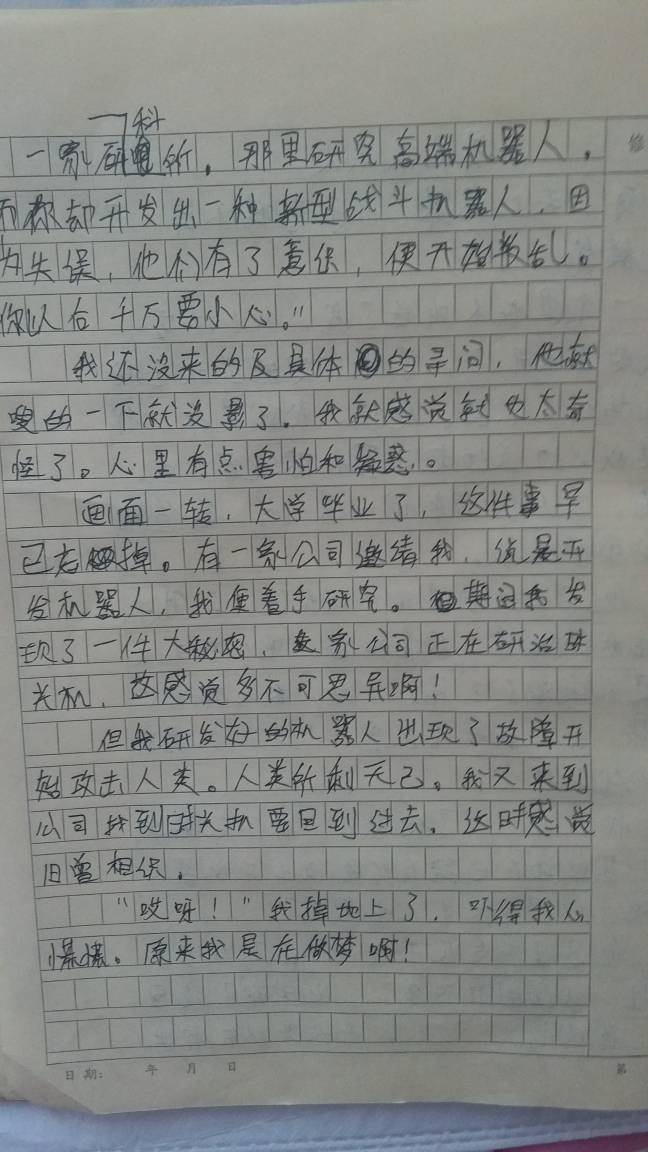 一家科研所，那里研究高端机器人，
而你却开发出一种新型战斗机器人，因
为失误，他们有了意识，便开始叛乱。
你以后千万要小心。”
我还没来的及具体的寻问，他就
嗖的一下就没影了。我就感觉就也太奇
怪了。心里有点害怕和疑惑。
画面一转，大学毕业了，这件事早
已忘掉。有一家公司邀请我，说是开
发机器人，我便着手研究。期间我发
现了一件大秘密，这家公司正在研治时
光机，故感觉多不可思异啊！
但我研发好的机器人出现了故障开
始攻击人类。人类所剩无己。我又来到
公司找到时光机要回到过去，这时感觉
旧曾相识。
“哎呀！”我掉地上了，吓得我心
慌慌。原来我是在做梦啊！
日期： 年 月 日
第